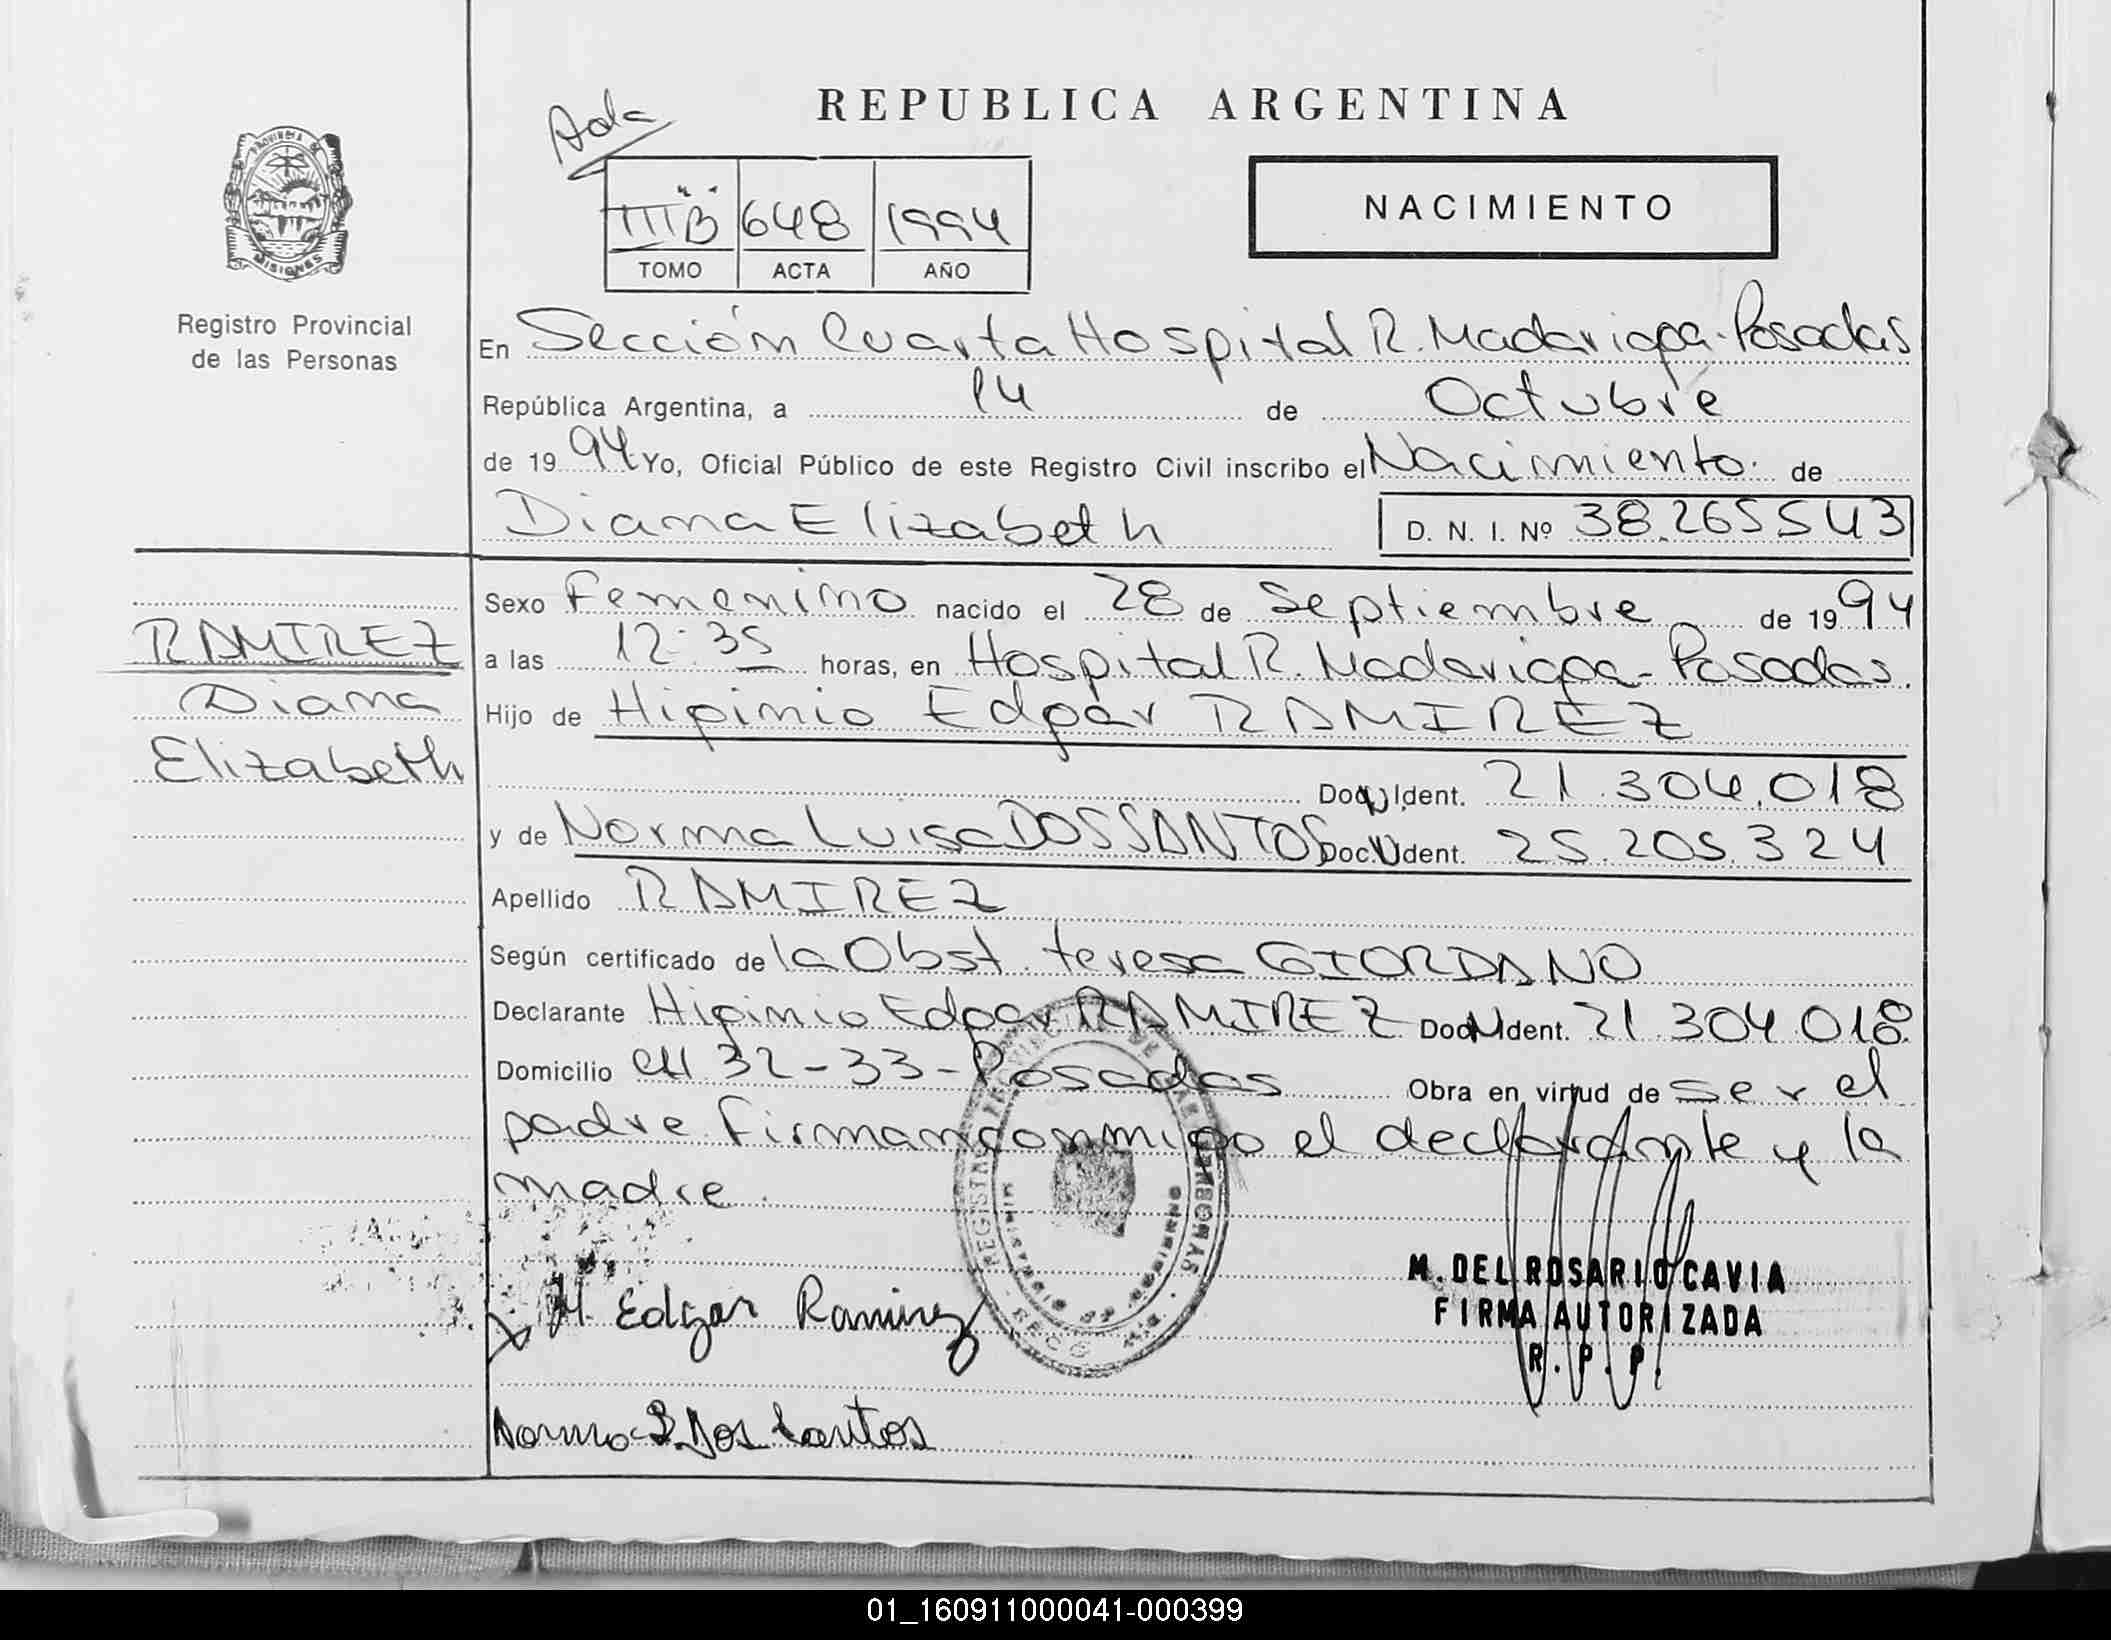 REPUBLICA ARGENTINA
Ada
III "B" 648 1994
TOMO ACTA AÑO
NACIMIENTO
PROVINCIA DE
MISIONES
Registro Provincial
de las Personas
En Sección Cuarta Hospital R. Madariaga-Posadas
República Argentina, a 14 de Octubre
de 1994 Yo, Oficial Público de este Registro Civil inscribo el Nacimiento de
Diana Elizabeth D. N. I. Nº 38.265543
Sexo Femenino nacido el 28 de Septiembre de 1994
RAMIREZ
Diana
Elizabeth
a las 12:35 horas, en Hospital R. Madariaga-Posadas.
Hijo de Higinio Edgar RAMIREZ
Doc. Ident. 21.304.018
y de Norma Luisa DOS SANTOS Doc. Ident. 25.205.324
Apellido RAMIREZ
Según certificado de la Obst. teresa GIORDANO
Declarante Higinio Edgar RAMIREZ Doc. Ident. 21.304.018
Domicilio CH 32-33-Posadas Obra en virtud de ser el
padre. firman conmigo el declarante y la
madre.
M. DEL ROSARIO CAVIA
FIRMA AUTORIZADA
R. P. P.
H. Edgar Ramirez
Norma L Dos Santos
01_160911000041-000399